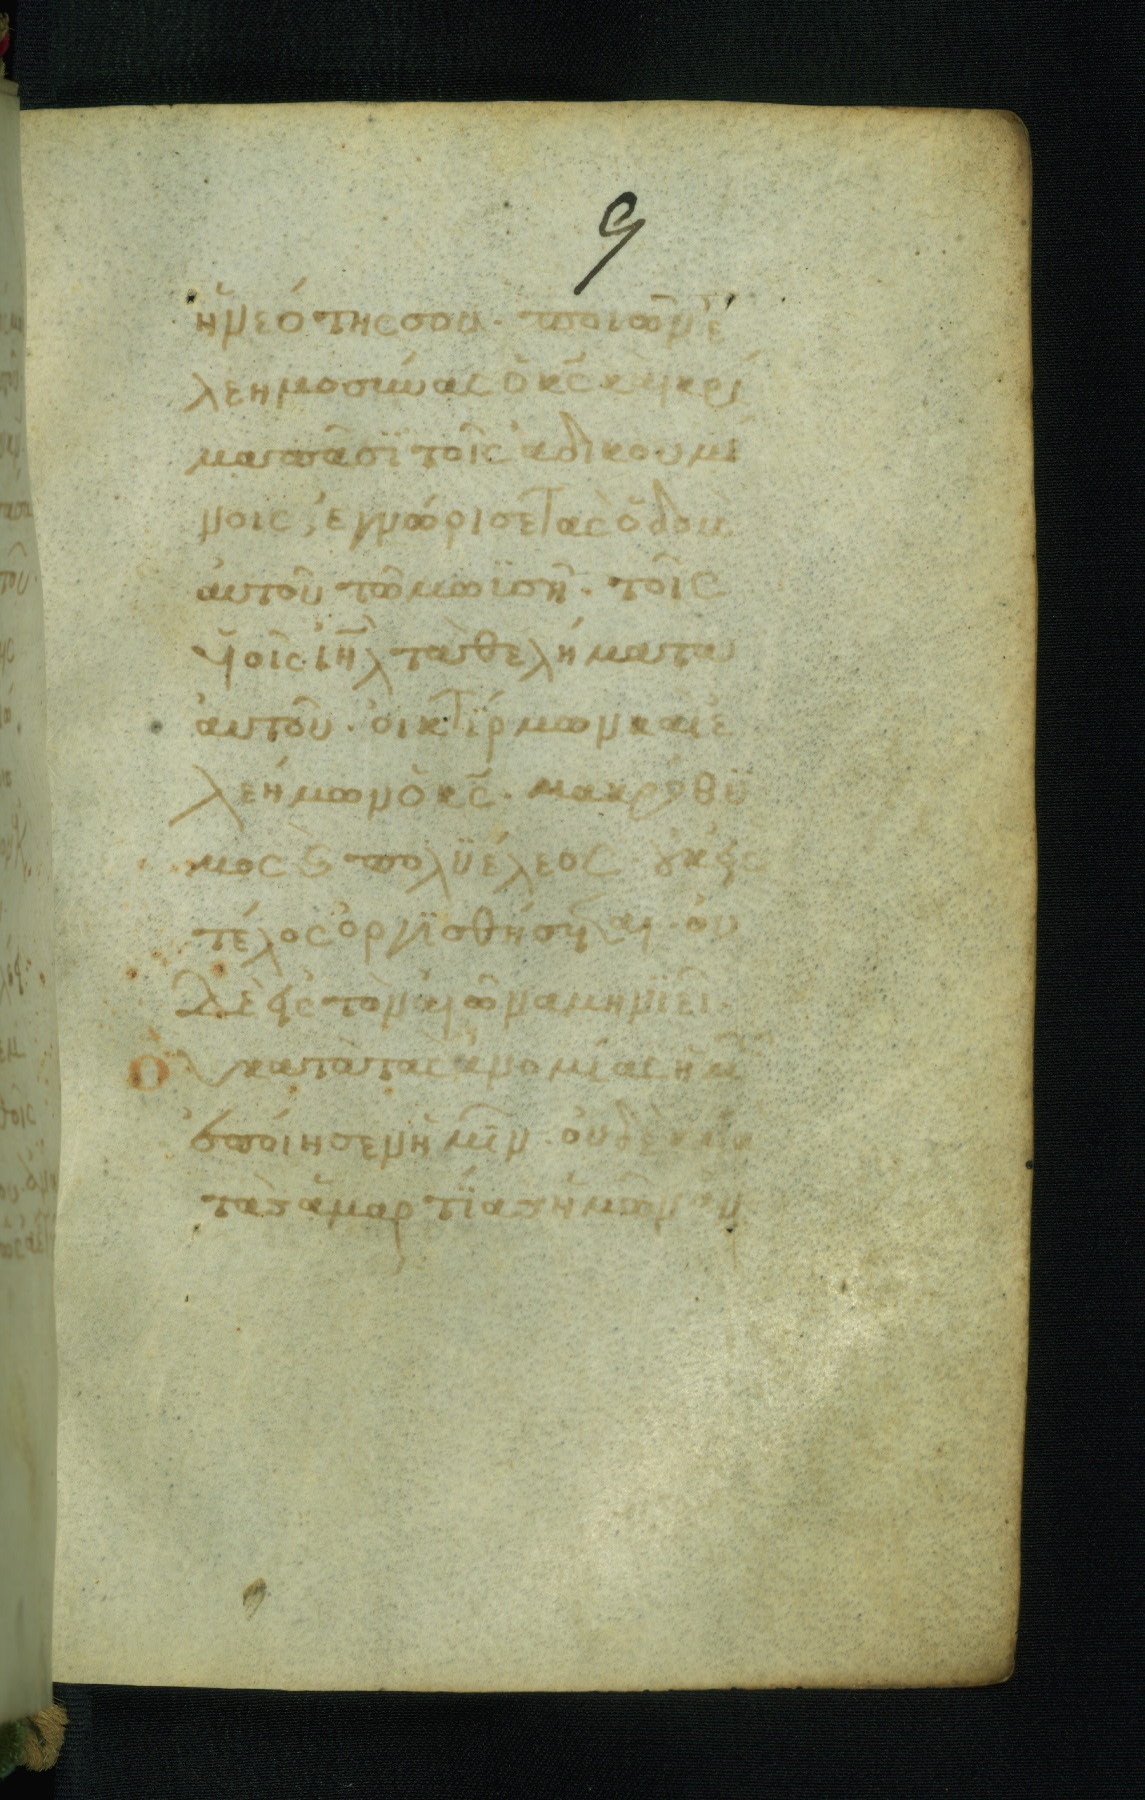 9
ἡ νεότης σου· ποιῶν ἐ
λεημοσύνας ὁ κ̅ς̅ καὶ κρί
μα πᾶσϊ τοῖς ἀδικουμέ
νοις· ἐγνώρισε τὰς ὁδοὺς
ἀυτοῦ τῶ μωϊσῆ· τοῖς
υἱοῖς ι̅η̅λ̅ τὰ θελήματα
ἀυτοῦ· οἰκτίρμων καὶ ἐ
λεήμων ὁ κ̅ς̅· μακρόθυ
μος ϗ πολϋέλεος· οὐκ εἰς
τέλος ὀργϊσθήσεται· οὐ
δὲ εἰς τὸν αἰῶνα μηνϊεῖ·
Ὀυ κατὰ τὰς ἀνομίας ἡμῶν
ἐποίησεν ἡμῖν· ὀυδὲ κατὰ
τὰς ἁμαρτϊας ἡμῶν ἀν